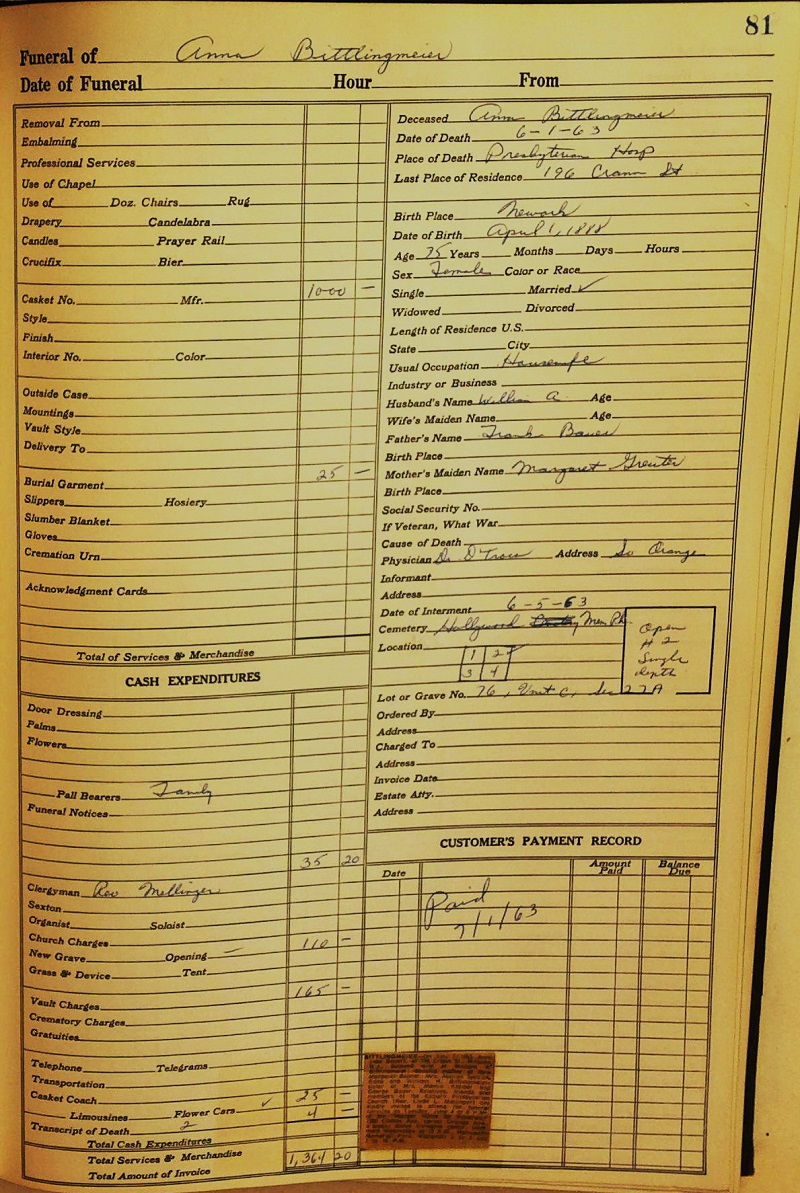 81
Funeral of Anna Bittlingmeier
Date of Funeral Hour From
Removal From
Embalming
Professional Services
Use of Chapel
Use of Doz. Chairs Rug
Drapery Candelabra
Candles Prayer Rail
Crucifix Bier
Casket No. Mfr. 1000 —
Style
Finish
Interior No. Color
Outside Case
Mountings
Vault Style
Delivery To
Burial Garment 25 —
Slippers Hosiery
Slumber Blanket
Gloves
Cremation Urn
Acknowledgment Cards
Total of Services & Merchandise
CASH EXPENDITURES
Door Dressing
Palms
Flowers
Pall Bearers Family
Funeral Notices
35 20
Clergyman Rev Mellinger
Sexton
Organist Soloist
Church Charges 110 —
New Grave Opening —
Grass & Device Tent
165 —
Vault Charges
Crematory Charges
Gratuities
Telephone Telegrams
Transportation
Casket Coach 25 —
Limousines Flower Cars ✓ 4 —
Transcript of Death 2
Total Cash Expenditures
Total Services & Merchandise 1,364 20
Total Amount of Invoice
Deceased Anna Bittlingmeier
Date of Death 6-1-63
Place of Death Presbyterian Hosp
Last Place of Residence 196 Crann St
Birth Place Newark
Date of Birth April 1, 1888
Age 75 Years Months Days Hours
Sex Female Color or Race
Single Married ✓
Widowed Divorced
Length of Residence U.S.
State City
Usual Occupation Housewife
Industry or Business
Husband's Name William A Age
Wife's Maiden Name Age
Father's Name Frank Bauer
Birth Place
Mother's Maiden Name Margaret Greuter
Birth Place
Social Security No.
If Veteran, What War
Cause of Death
Physician Dr Address So Orange
Informant
Address
Date of Interment 6-5-63
Cemetery Hollywood Mem. Pk.
Location
1 2
3 4
Open
#2
Single
depth
Lot or Grave No. 76, Unit C, Sec 27A
Ordered By
Address
Charged To
Address
Invoice Date
Estate Atty.
Address
CUSTOMER'S PAYMENT RECORD
Date Amount Paid Balance Due
Paid
7/1/63
BITTLINGMEIER